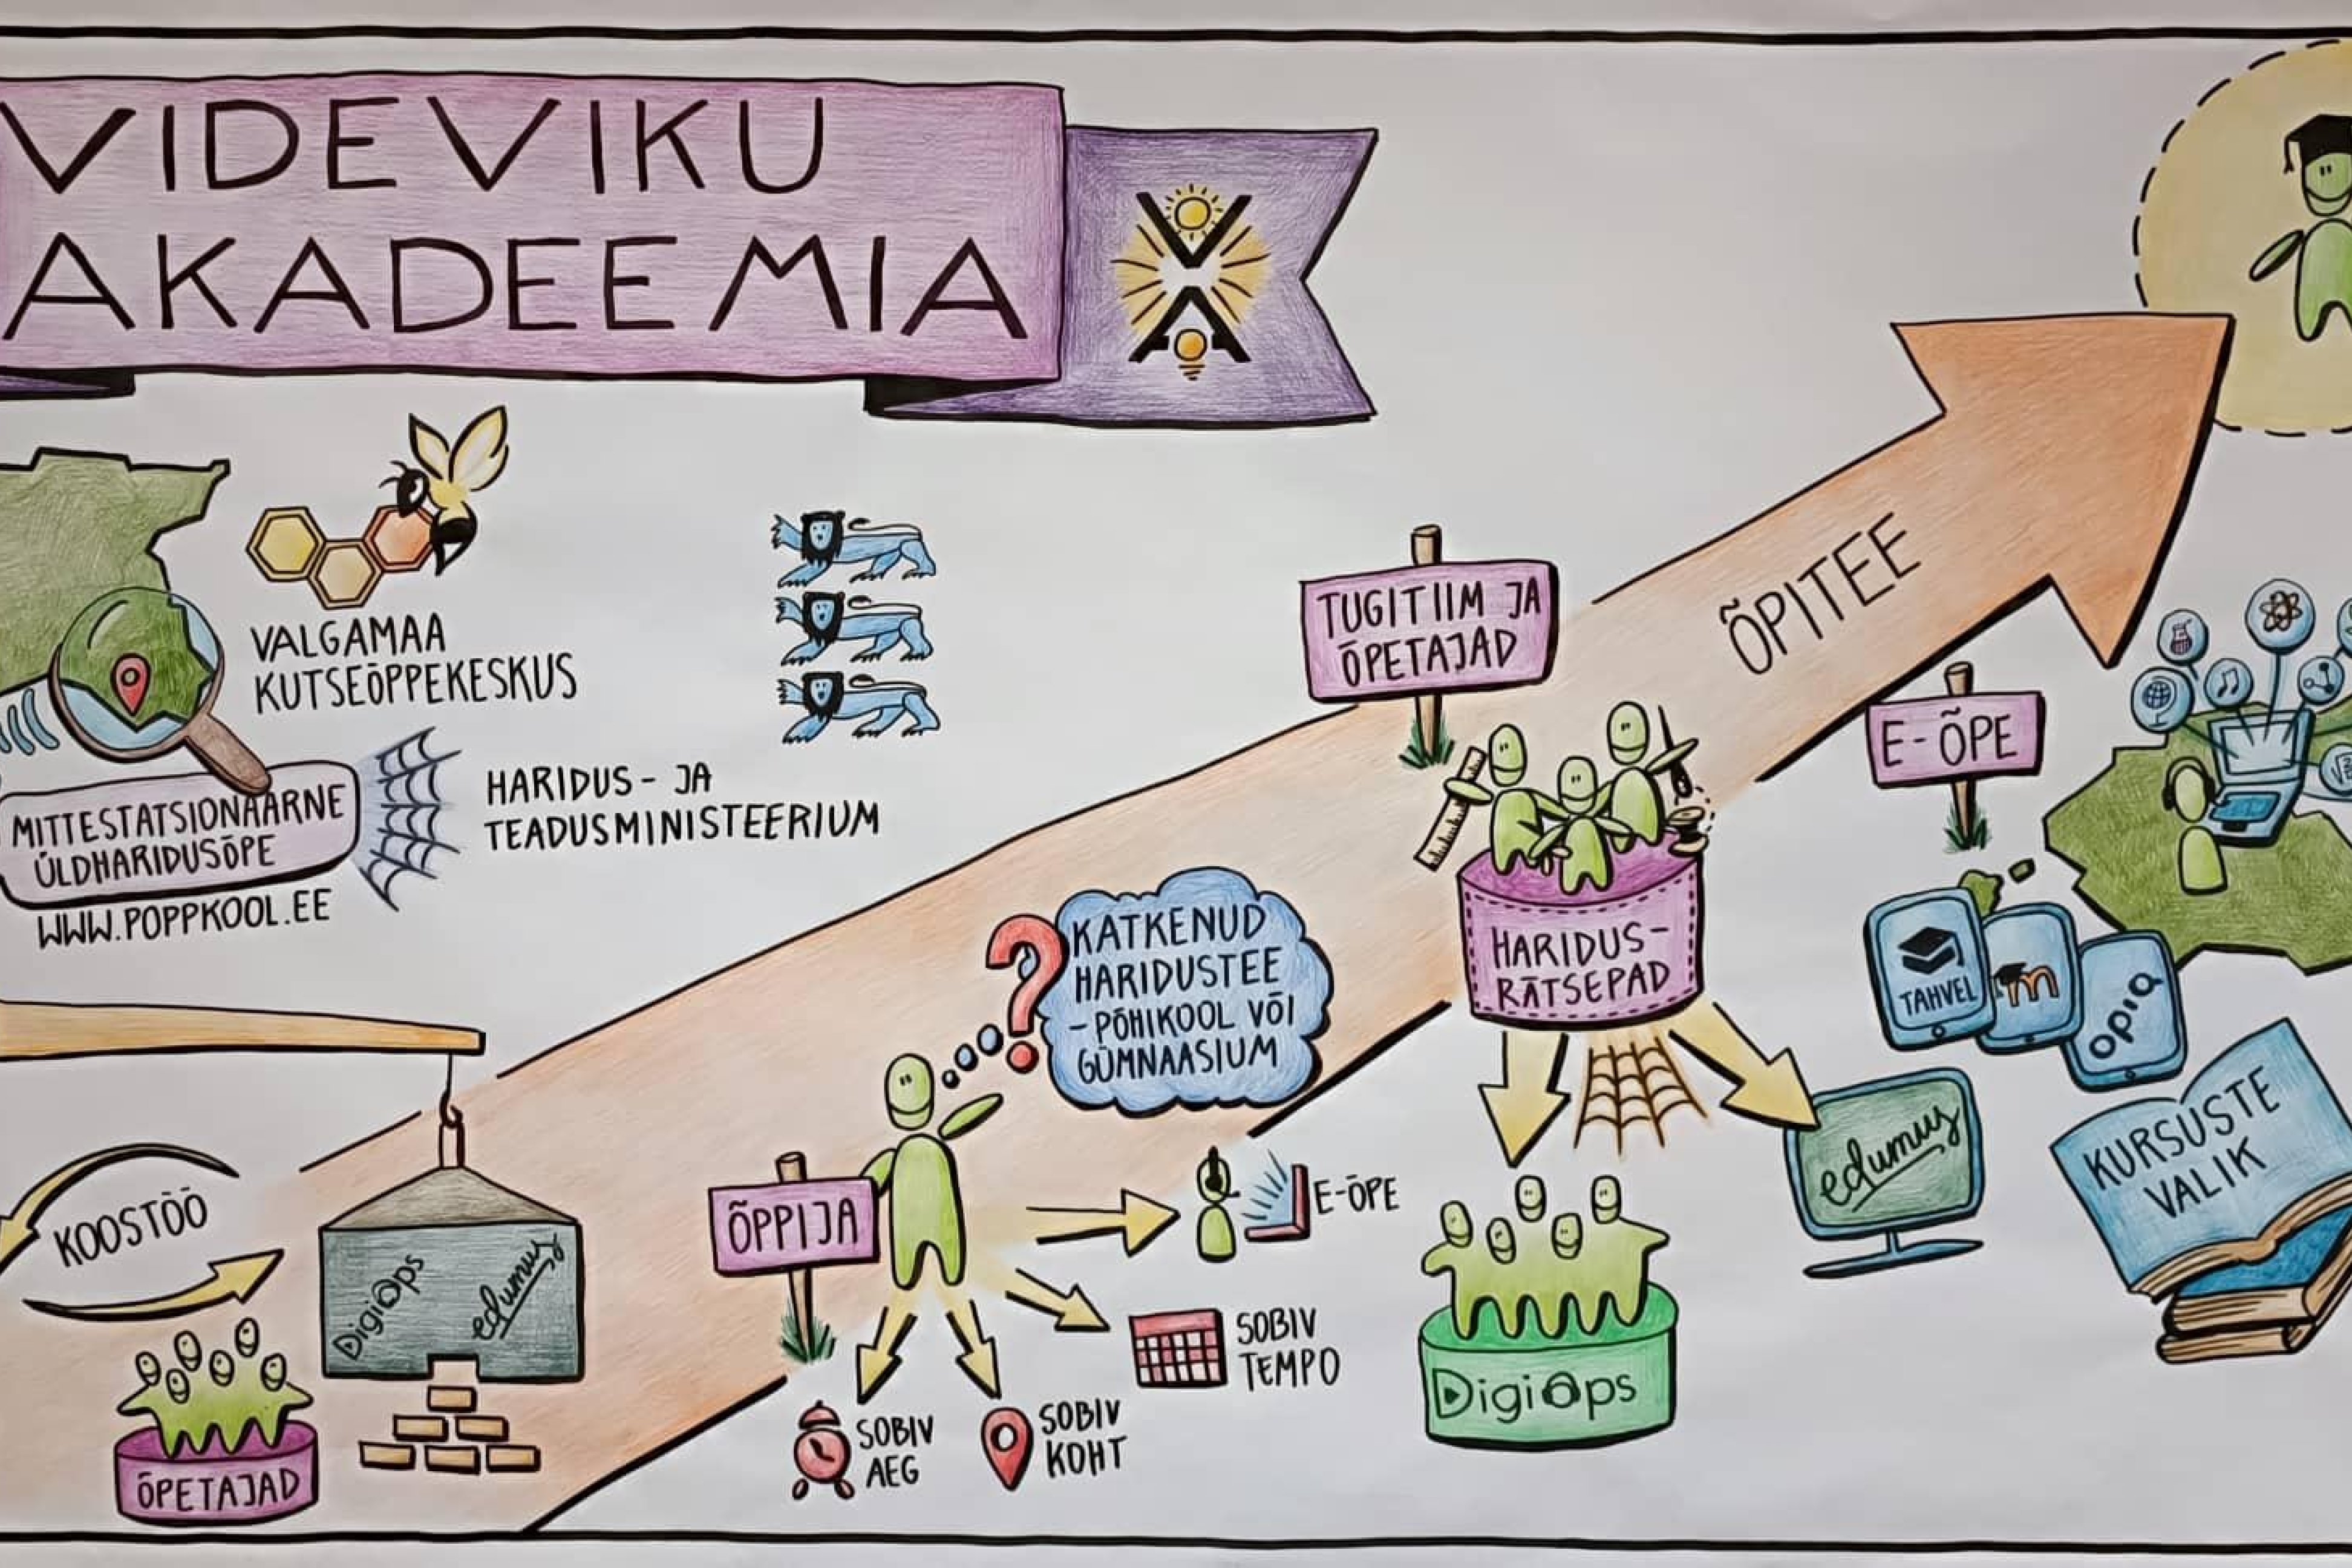 VIDEVIKU
AKADEEMIA
VALGAMAA
KUTSEÕPPEKESKUS
MITTESTATSIONAARNE
ÜLDHARIDUSÕPE
WWW.POPPKOOL.EE
HARIDUS- JA
TEADUSMINISTEERIUM
KOOSTÖÖ
ÕPETAJAD
DigiÕps
edumus
ÕPPIJA
KATKENUD
HARIDUSTEE
- PÕHIKOOL VÕI
GÜMNAASIUM
E-ÕPE
SOBIV
TEMPO
SOBIV
KOHT
SOBIV
AEG
TUGITIIM JA
ÕPETAJAD
HARIDUS-
RÄTSEPAD
DigiÕps
edumus
ÕPITEE
E-ÕPE
TAHVEL
m
opiq
KURSUSTE
VALIK